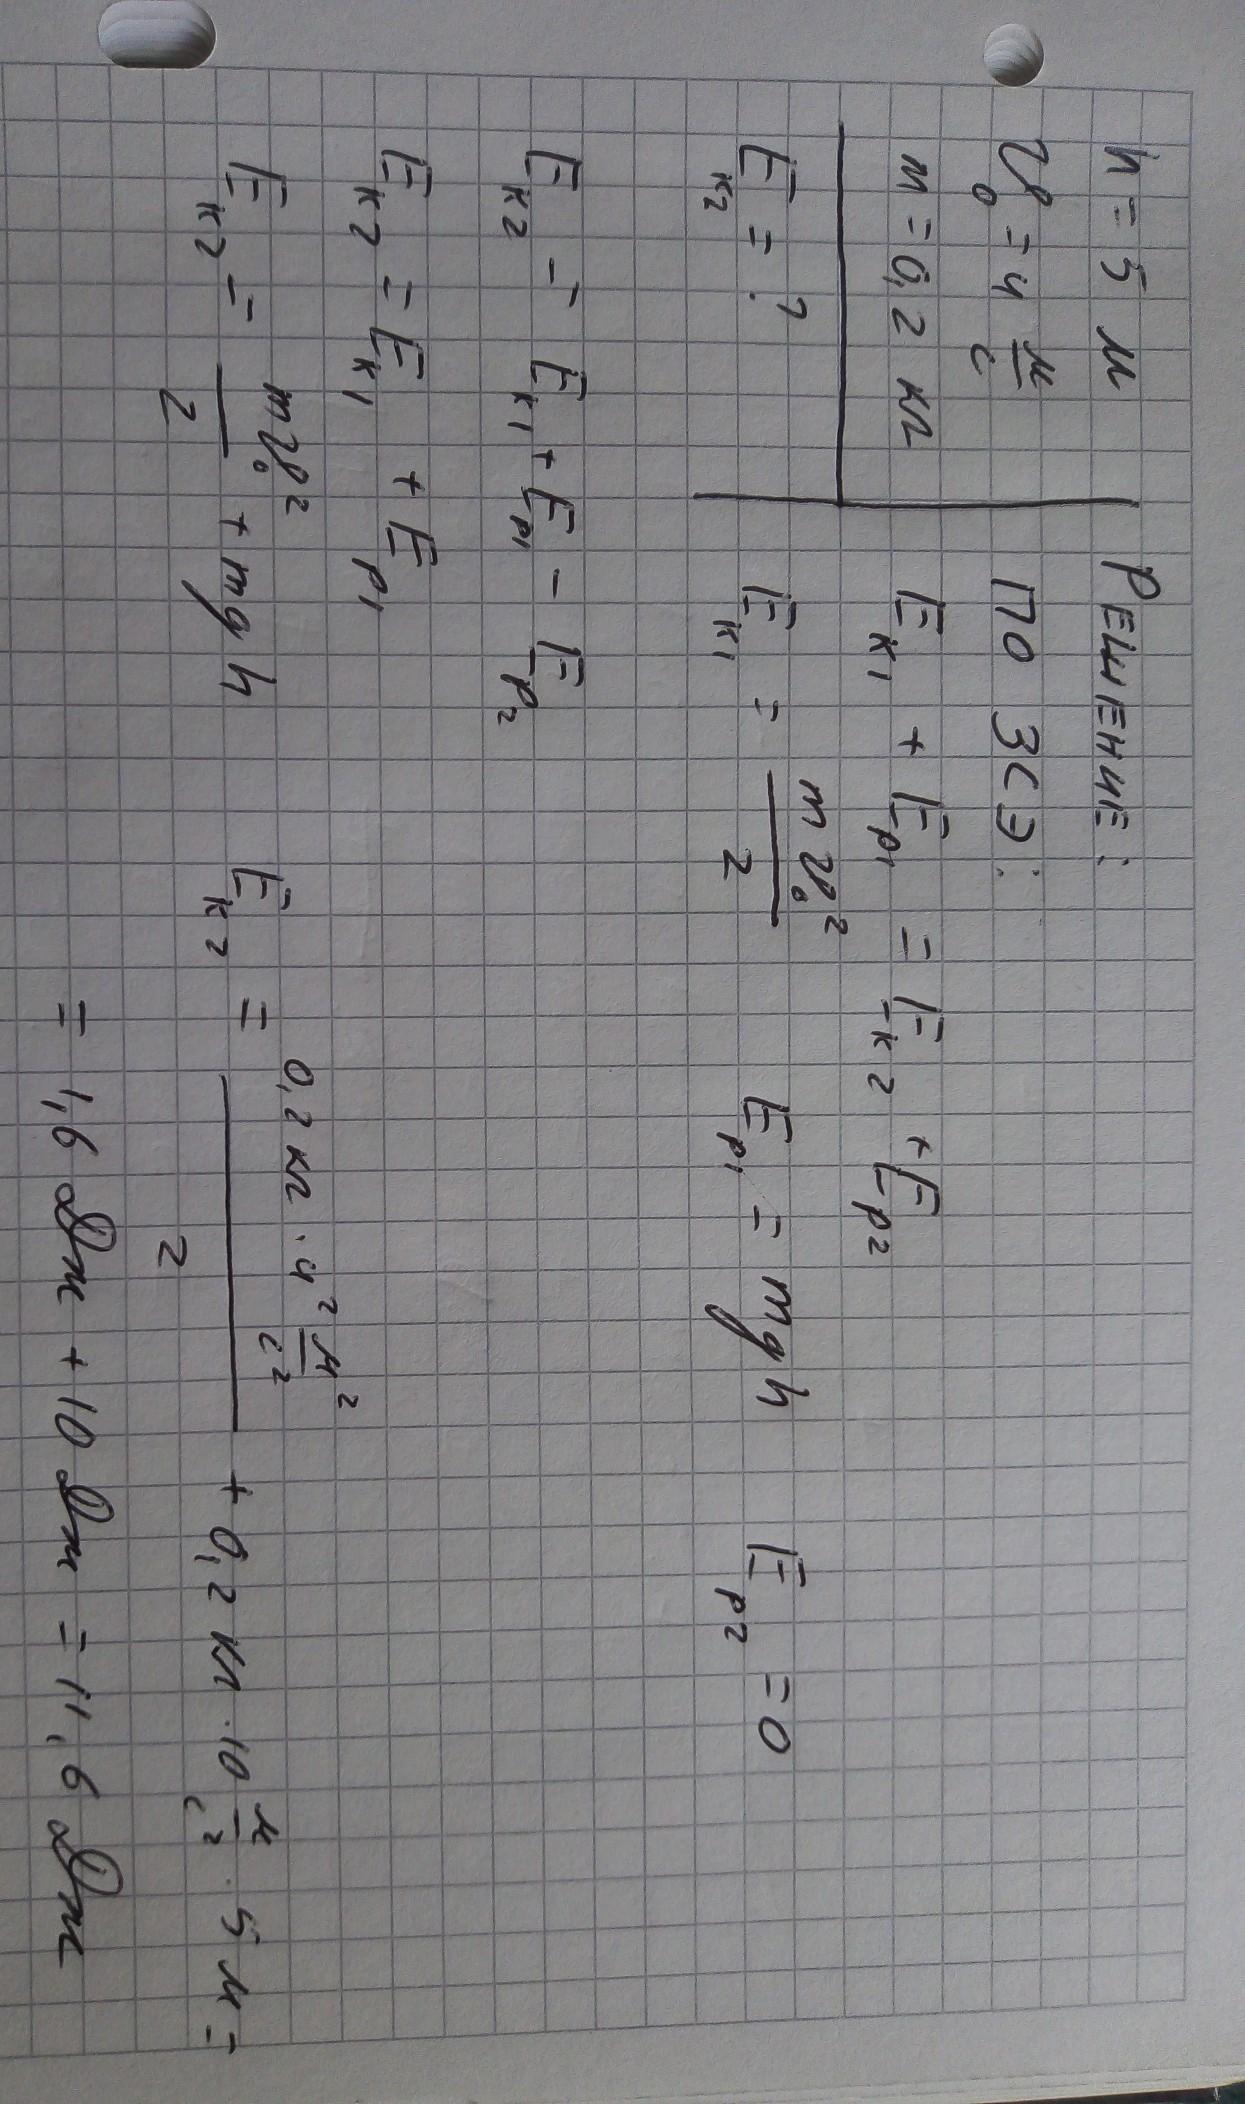 h = 5 м
v₀ = 4 м/с
m = 0,2 кг
Eк₂ = ?
Решение:
по ЗСЭ:
Eк₁ + Eр₁ = Eк₂ + Eр₂
Eк₁ = mv₀²/2 Eр₁ = mgh Eр₂ = 0
Eк₂ = Eк₁ + Eр₁ - Eр₂
Eк₂ = Eк₁ + Eр₁
Eк₂ = mv₀²/2 + mgh
Eк₂ = 0,2 кг · 4² м²/с² / 2 + 0,2 кг · 10 м/с² · 5 м =
= 1,6 Дж + 10 Дж = 11,6 Дж